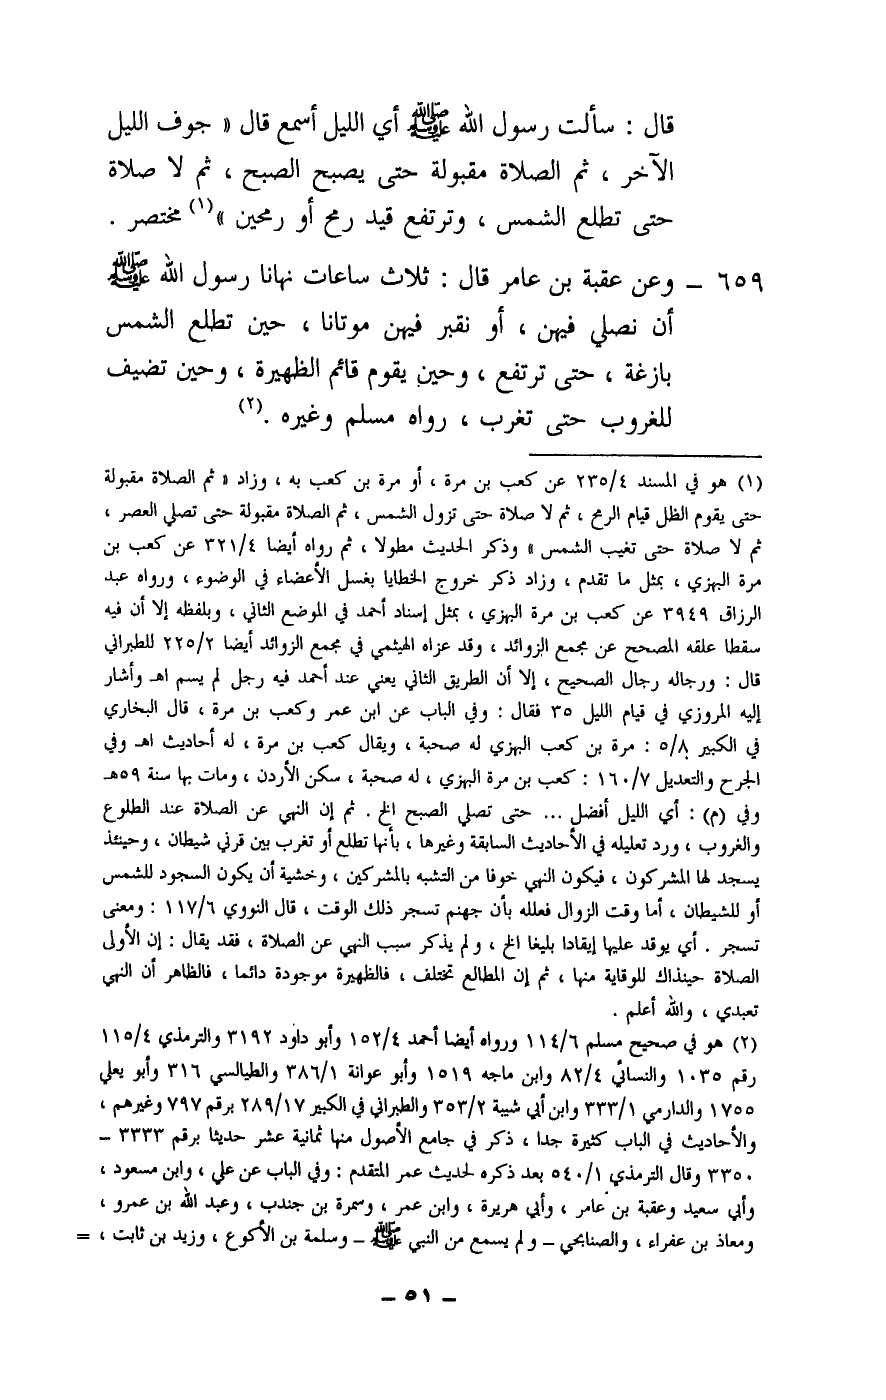 قال : سألت رسول الله ﷺ أي الليل أسمع قال « جوف الليل
الآخر ، ثم الصلاة مقبولة حتى يصبح الصبح ، ثم لا صلاة
حتى تطلع الشمس ، وترتفع قيد رمح أو رمحين »(١) مختصر .
٦٥٩ – وعن عقبة بن عامر قال : ثلاث ساعات نهانا رسول الله ﷺ
أن نصلي فيهن ، أو نقبر فيهن موتانا ، حين تطلع الشمس
بازغة ، حتى ترتفع ، وحين يقوم قائم الظهيرة ، وحين تضيف
للغروب حتى تغرب ، رواه مسلم وغيره .(٢)
(١) هو في المسند ٢٣٥/٤ عن كعب بن مرة ، أو مرة بن كعب به ، وزاد « ثم الصلاة مقبولة
حتى يقوم الظل قيام الرمح ، ثم لا صلاة حتى تزول الشمس ، ثم الصلاة مقبولة حتى تصلي العصر ،
ثم لا صلاة حتى تغيب الشمس » وذكر الحديث مطولا ، ثم رواه أيضا ٣٢١/٤ عن كعب بن
مرة البهزي ، بمثل ما تقدم ، وزاد ذكر خروج الخطايا بغسل الأعضاء في الوضوء ، ورواه عبد
الرزاق ٣٩٤٩ عن كعب بن مرة البهزي ، بمثل إسناد أحمد في الموضع الثاني ، وبلفظه إلا أن فيه
سقطا علقه المصحح عن مجمع الزوائد ، وقد عزاه الهيثمي في مجمع الزوائد أيضا ٢٢٥/٢ للطبراني
قال : ورجاله رجال الصحيح ، إلا أن الطريق الثاني يعني عند أحمد فيه رجل لم يسم اهـ وأشار
إليه المروزي في قيام الليل ٣٥ فقال : وفي الباب عن ابن عمر وكعب بن مرة ، قال البخاري
في الكبير ٥/٨ : مرة بن كعب البهزي له صحبة ، ويقال كعب بن مرة ، له أحاديث اهـ وفي
الجرح والتعديل ١٦٠/٧ : كعب بن مرة البهزي ، له صحبة ، سكن الأردن ، ومات بها سنة ٥٩هـ
وفي (م) : أي الليل أفضل ... حتى تصلي الصبح الخ . ثم إن النهي عن الصلاة عند الطلوع
والغروب ، ورد تعليله في الأحاديث السابقة وغيرها ، بأنها تطلع أو تغرب بين قرني شيطان ، وحينئذ
يسجد لها المشركون ، فيكون النهي خوفا من التشبه بالمشركين ، وخشية أن يكون السجود للشمس
أو للشيطان ، أما وقت الزوال فعلله بأن جهنم تسجر ذلك الوقت ، قال النووي ١١٧/٦ : ومعنى
تسجر . أي يوقد عليها إيقادا بليغا الخ ، ولم يذكر سبب النهي عن الصلاة ، فقد يقال : إن الأولى
الصلاة حينذاك للوقاية منها ، ثم إن المطالع تختلف ، فالظهيرة موجودة دائما ، فالظاهر أن النهي
تعبدي ، والله أعلم .
(٢) هو في صحيح مسلم ١١٤/٦ ورواه أيضا أحمد ١٥٢/٤ وأبو داود ٣١٩٢ والترمذي ١١٥/٤
رقم ١٠٣٥ والنسائي ٨٢/٤ وابن ماجه ١٥١٩ وأبو عوانة ٣٨٦/١ والطيالسي ٣١٦ وأبو يعلي
١٧٥٥ والدارمي ٣٣٣/١ وابن أبي شيبة ٣٥٣/٢ والطبراني في الكبير ٢٨٩/١٧ برقم ٧٩٧ وغيرهم ،
والأحاديث في الباب كثيرة جدا ، ذكر في جامع الأصول منها ثمانية عشر حديثا برقم ٣٣٣٣ –
٣٣٥٠ وقال الترمذي ٥٤٠/١ بعد ذكره لحديث عمر المتقدم : وفي الباب عن علي ، وابن مسعود ،
وأبي سعيد وعقبة بن عامر ، وأبي هريرة ، وابن عمر ، وسمرة بن جندب ، وعبد الله بن عمرو ،
ومعاذ بن عفراء ، والصنابحي – ولم يسمع من النبي ﷺ – وسلمة بن الأكوع ، وزيد بن ثابت ، =
– ٥١ –